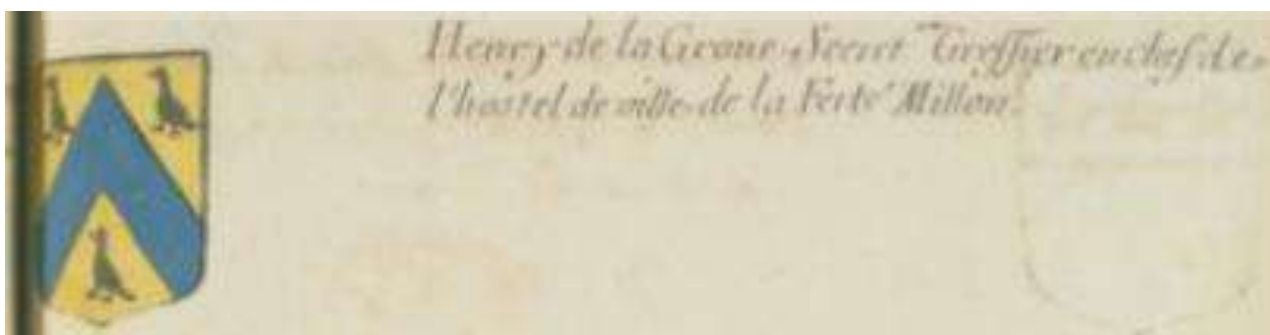 Henry de la Groüe Secret.re Greffier en chef de
l'hostel de ville de la Ferté Millon.